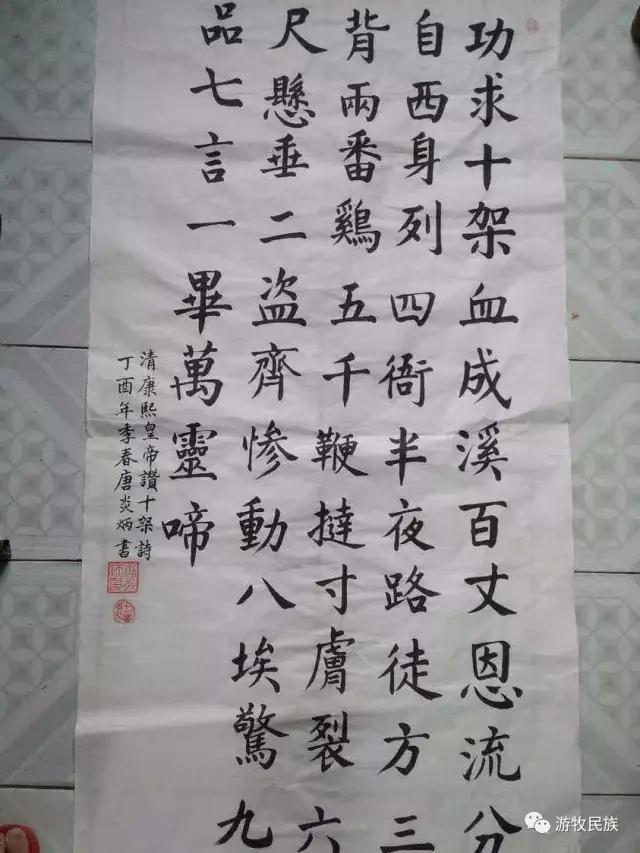 功求十架血成溪百丈恩流分
自西身列四衙半夜路徒方三
背兩番鷄五千鞭撻寸膚裂六
尺懸垂二盜齊慘動八埃驚九
品七言一畢萬靈啼
清康熙皇帝讚十架詩
丁酉年季春唐炎炳書
游牧民族